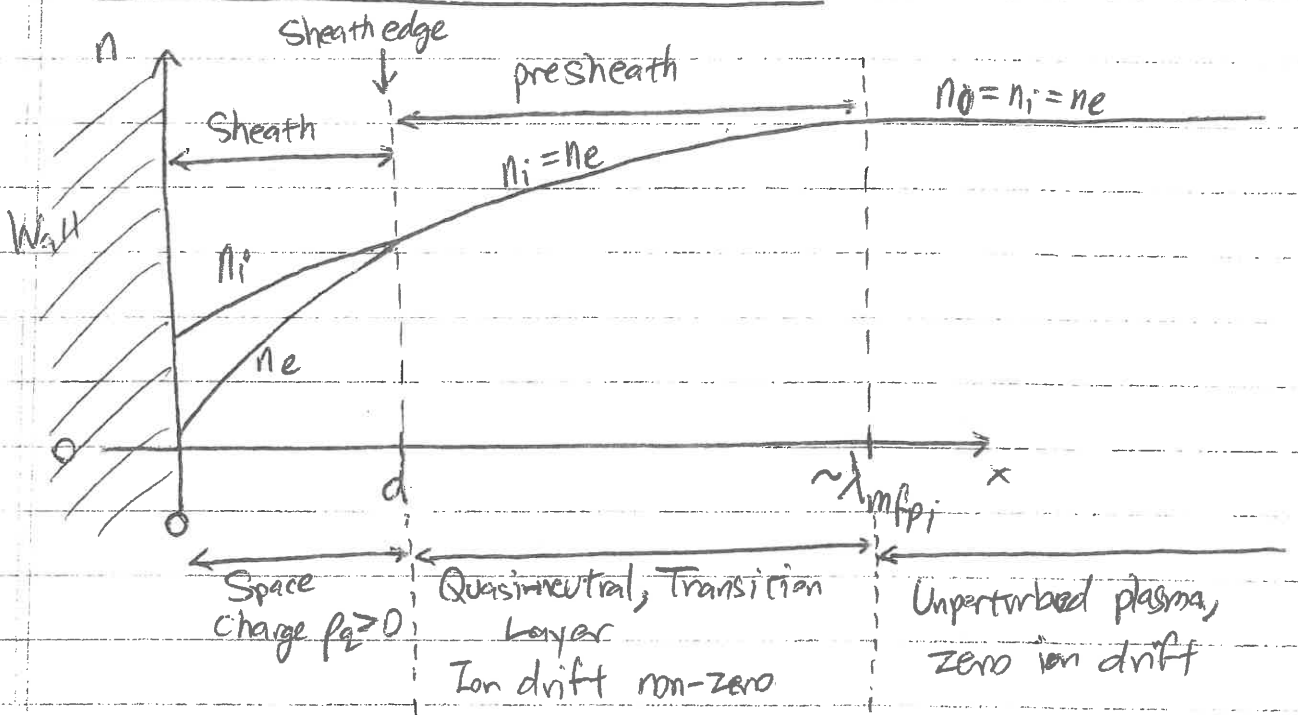 Sheath edge
n
presheath
n₀ = nᵢ = nₑ
Sheath
nᵢ = nₑ
Wall
nᵢ
nₑ
O
d
~λmfpᵢ
x
O
Space
charge ρq>0
Quasineutral, Transition
Layer
Ion drift non-zero
Unperturbed plasma,
zero ion drift